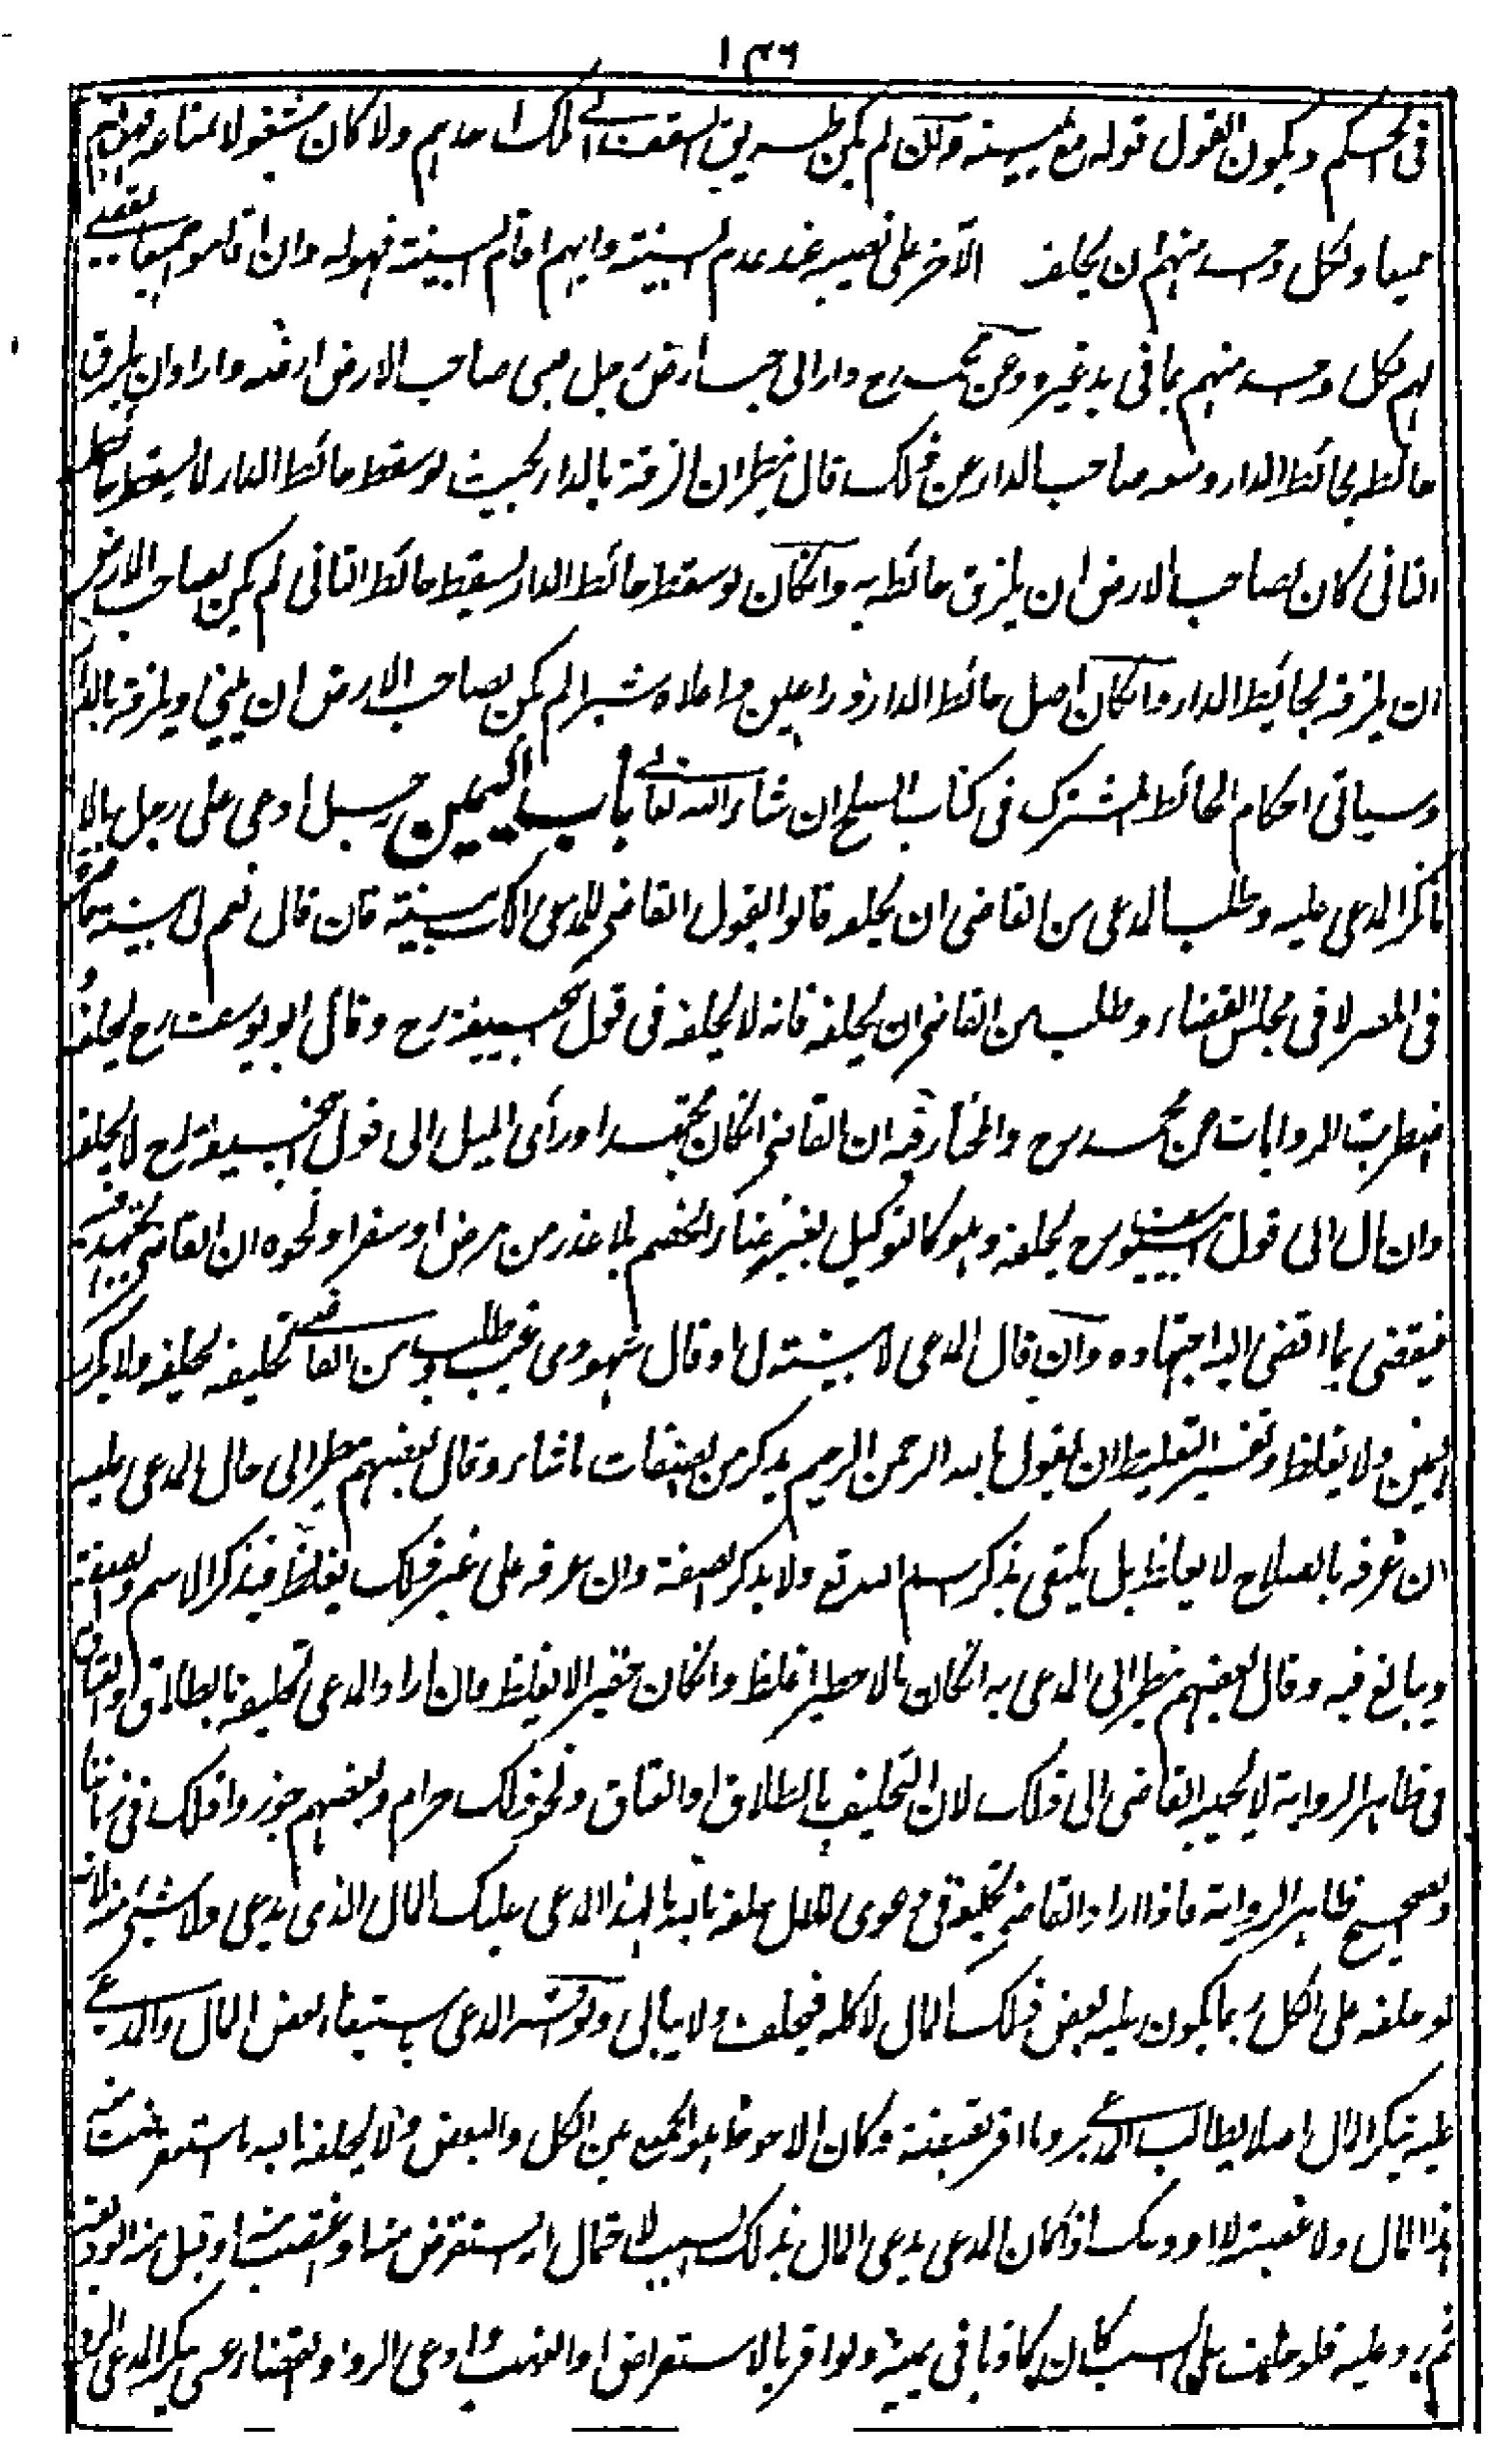 ١٣٦
فى الحكم ويكون القول قوله مع يمينه وان لم يكن طريق السقف الى ملك احدهم ولا كان مشغولا بمتاعه فهو لهم
جميعا ولكل واحد منهم ان يحلف الآخر على نصيبه عند عدم البينة وايهم اقام البينة فهو له وان اقاموا جميعا يقضى
لهم لكل واحد منهم بما فى يد غيره وعن محمد رح دار الى جنب ارض رجل بنى صاحب الارض ارضه دارا واراد ان يلزق
حائطه بحائط الدار ومنعه صاحب الدار عن ذلك قال ينظر ان الزقه بالدار بحيث لو سقط حائط الدار لا يسقط حائط
الثانى كان لصاحب الارض ان يلزق حائطه به وانكان لو سقط حائط الدار يسقط حائط الثانى لم يكن لصاحب الارض
ان يلزقه بحائط الدار وانكان اصل حائط الدار ذراعين واعلاه شبرا لم يكن لصاحب الارض ان يبنى ويلزقه بالدار
وسياتى احكام الحائط المشترك فى كتاب الصلح ان شاء الله تعالى باب اليمين رجل ادعى على رجل مالا
فانكر المدعى عليه وطلب المدعى من القاضى ان يحلفه قالوا يقول القاضى للمدعى الك بينة فان قال نعم لى بينة حاضرة
فى المصر لا فى مجلس القضاء وطلب من القاضى ان يحلفه فانه لا يحلفه فى قول ابيحنيفة رح وقال ابو يوسف رح يحلفه و
اضطربت الروايات عن محمد رح والمختار فيه ان القاضى انكان مجتهدا ورأى الميل الى قول ابيحنيفة رح لا يحلفه
وان مال الى قول ابييوسف رح يحلفه وهو كالتوكيل بغير رضاء الخصم بلا عذر من مرض او سفر او نحوه ان القاضى يجتهد فيه
فيقضى بما افضى اليه اجتهاده وان قال المدعى لا بينة لى او قال شهودى غيب وطلب من القاضى تحليفه يحلفه ولا يكرر
اليمين ولا يغلظ وتفسير التغليظ ان يقول بالله الرحمن الرحيم يذكر من الصفات ما شاء وقال بعضهم ينظر الى حال المدعى عليه
ان عرفه بالصلاح لا يغلظ بل يكتفى بذكر اسم الله تع ولا يذكر الصفة وان عرفه على غير ذلك يغلظ فيذكر الاسم والصفة
ويبالغ فيه وقال بعضهم ينظر الى المدعى به انكان مالا خطيرا غلظ وانكان حقيرا لا يغلظ وان اراد المدعى تحليفه بالطلاق او العتاق
فى ظاهر الرواية لا يجيبه القاضى الى ذلك لان التحليف بالطلاق او العتاق ونحو ذلك حرام وبعضهم جوزوا ذلك فى زماننا
والصحيح ظاهر الرواية فاذا اراد القاضى تحليفه فى دعوى المال حلفه بالله ما لهذا المدعى عليك المال الذى يدعى ولا شئ منه لانه
لو حلفه على الكل ربما يكون عليه بعض ذلك المال لا كله فيحلف ولا يبالى ولو اقر المدعى باستيفاء بعض المال والمدعى
عليه ينكر المال اصلا يطالب المدعى وما اقر بقبضه وكان الاحوط هو الجمع بين الكل والبعض ولا يحلفه بالله ما استقرضت منه
هذا المال ولا غصبته ولا اودعك اذا كان المدعى يدعى المال بذلك السبب لاحتمال انه استقرض منه او غصب منه او قبل منه الوديعة
ثم رد عليه فلو حلف على السبب كان كاذبا فى يمينه ولو اقر بالاستقراض او الغصب وادعى الرد او القضاء عسى ينكر المدعى الرد